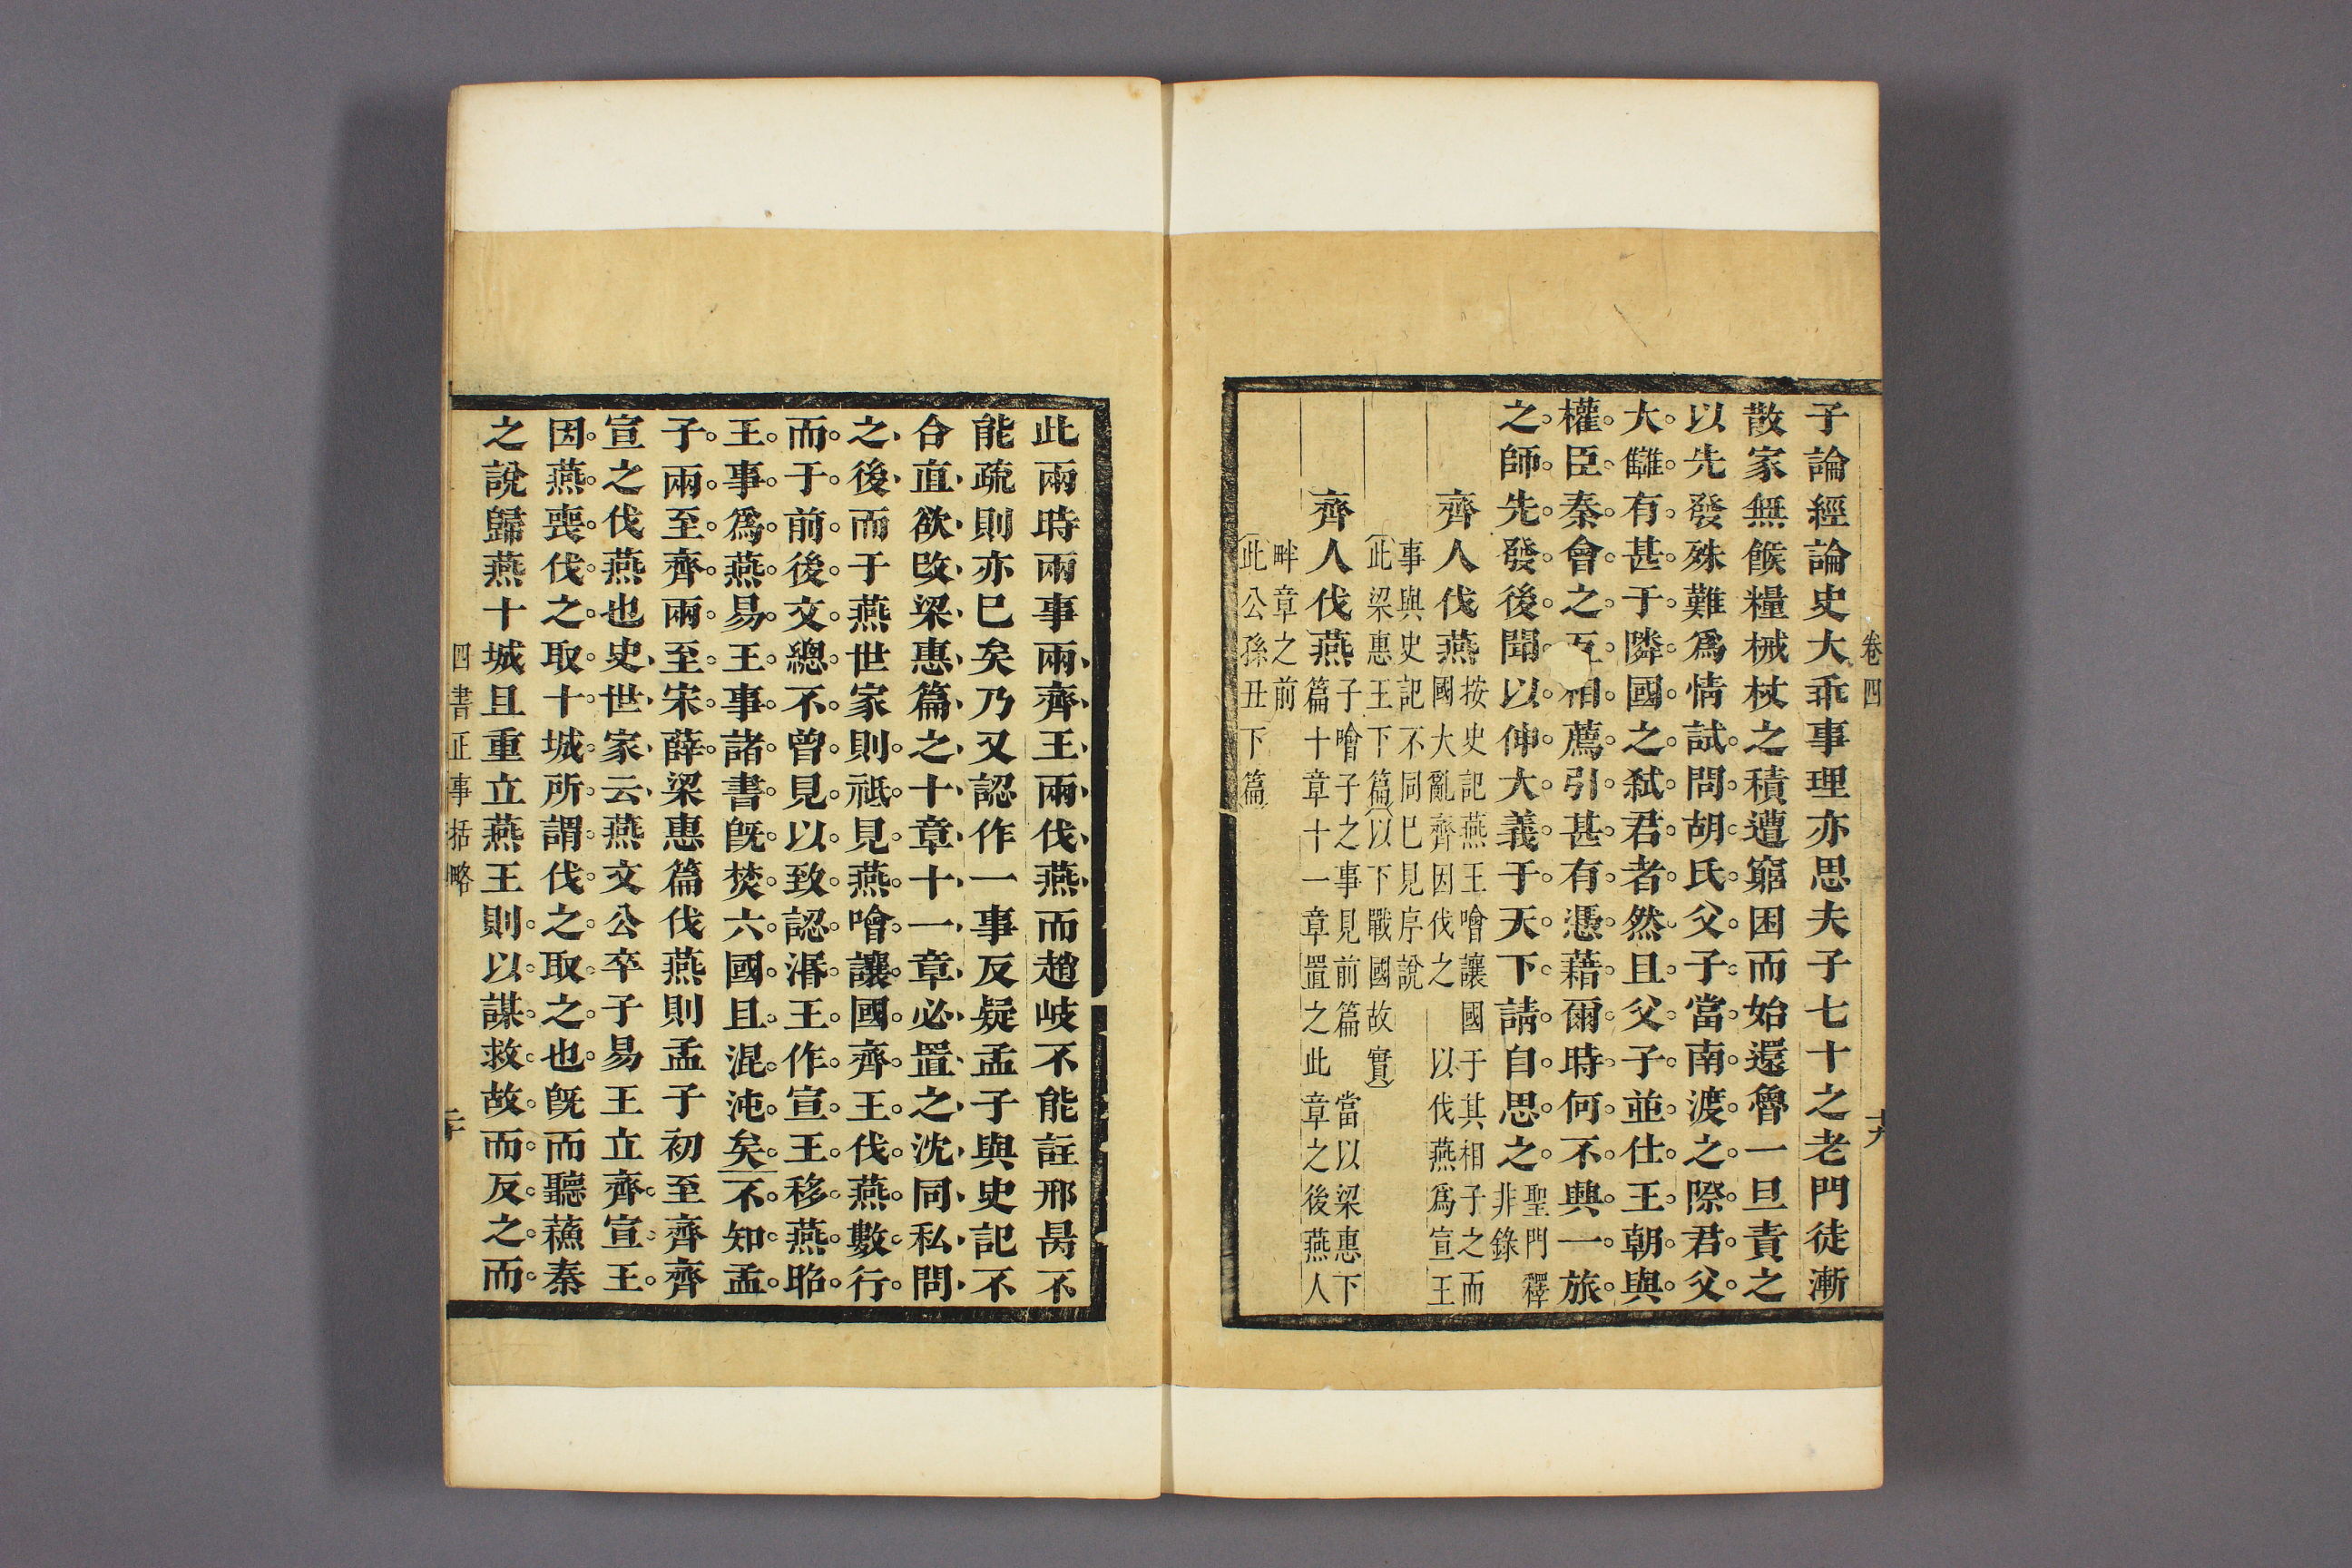 卷四
十九
子論經論史大乖事理亦思夫子七十之老門徒漸
散家無餱糧械杖之積遭窮困而始還魯一旦責之
以先發殊難爲情試問胡氏父子當南渡之際君父
大讎有甚于隣國之弒君者然且父子並仕王朝與
權臣秦會之互相薦引甚有憑藉爾時何不興一旅
之師先發後聞以伸大義于天下請自思之聖門釋
非錄
齊人伐燕按史記燕王噲讓國于其相子之而
國大亂齊因伐之以伐燕爲宣王
事與史記不同巳見序說
此梁惠王下篇以下戰國故實
齊人伐燕子噲子之事見前篇當以梁惠下
篇十章十一章置之此章之後燕人
畔章之前
此公孫丑下篇
此兩時兩事兩齊王兩伐燕而趙岐不能註邢昺不
能疏則亦巳矣乃又認作一事反疑孟子與史記不
合直欲改梁惠篇之十章十一章必置之沈同私問
之後而于燕世家則祗見燕噲讓國齊王伐燕數行
而于前後文總不曾見以致認湣王作宣王移燕昭
王事爲燕易王事諸書旣焚六國且混沌矣不知孟
子兩至齊兩至宋薛梁惠篇伐燕則孟子初至齊齊
宣之伐燕也史世家云燕文公卒子易王立齊宣王
因燕喪伐之取十城所謂伐之取之也旣而聽蘓秦
之說歸燕十城且重立燕王則以謀救故而反之而
四書正事括略
二十